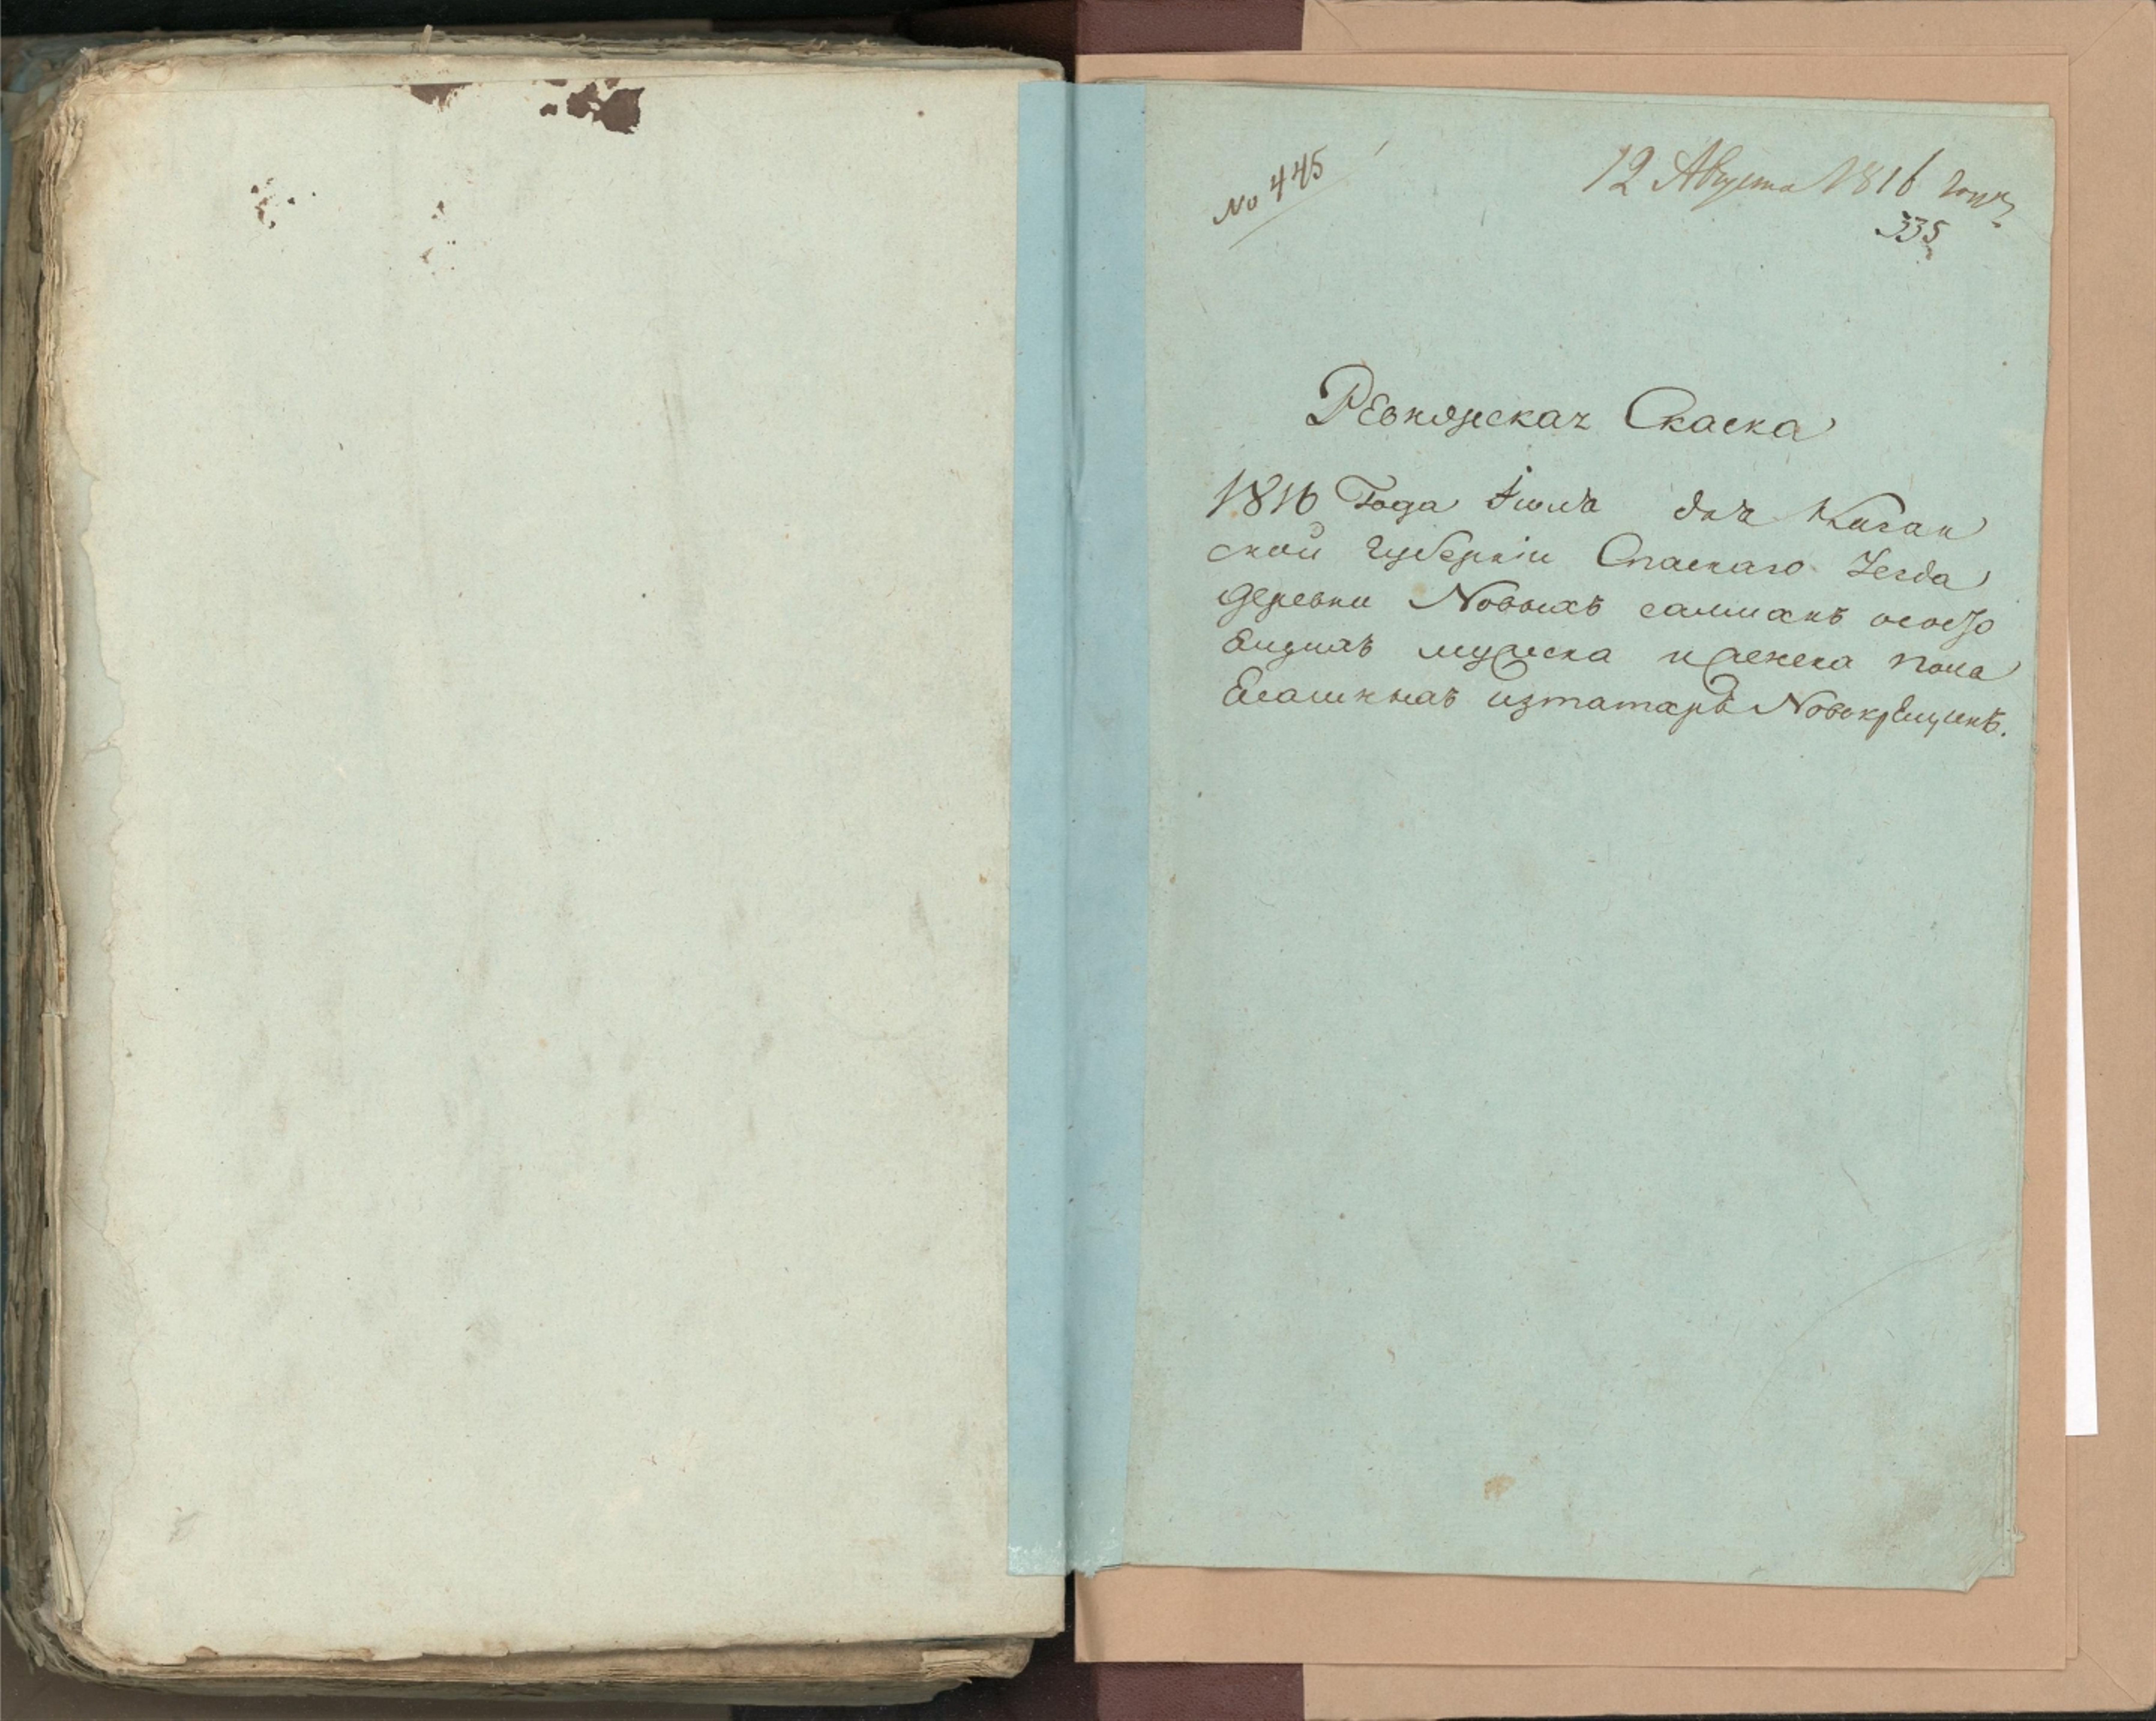 № 445
12 Августа 1816 года
335
Ревижская Скаска
1816 Года Июля дня Казан
ской губернiи Спаскаго Уезда
деревни Новыхъ салманъ особо
мужеска и женска пола
изтатаръ Новокрещинъ.